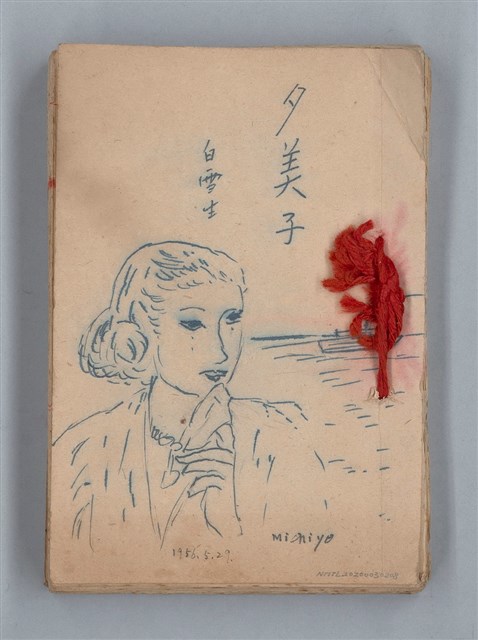 夕美子
白雪生
Michiyo
1956.5.29.